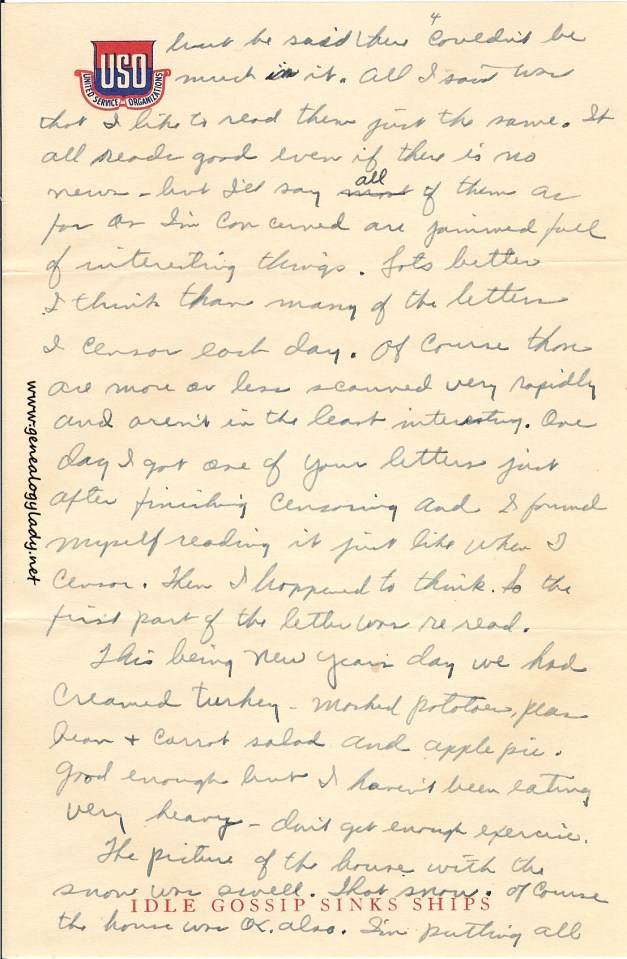 4
but he said there couldn't be
USO
UNITED SERVICE ORGANIZATIONS
much in it. All I said was
that I like to read them just the same. It
all reads good even if there is no
news - but I'd say most all of them as
far as I'm concerned are jammed full
of interesting things. Lots better
I think than many of the letters
I censor each day. Of course those
are more or less scanned very rapidly
and aren't in the least interesting. One
day I got one of your letters just
after finishing censoring and I found
myself reading it just like when I
censor. Then I happened to think. So the
first part of the letter was re read.
This being New Years day we had
creamed turkey - mashed potatoes, peas
bean + carrot salad and apple pie.
Good enough but I haven't been eating
very heavy - don't get enough exercise.
The picture of the house with the
snow was swell. That snow. Of course
IDLE GOSSIP SINKS SHIPS
the house was OK. also. I'm putting all
www.genealogylady.net